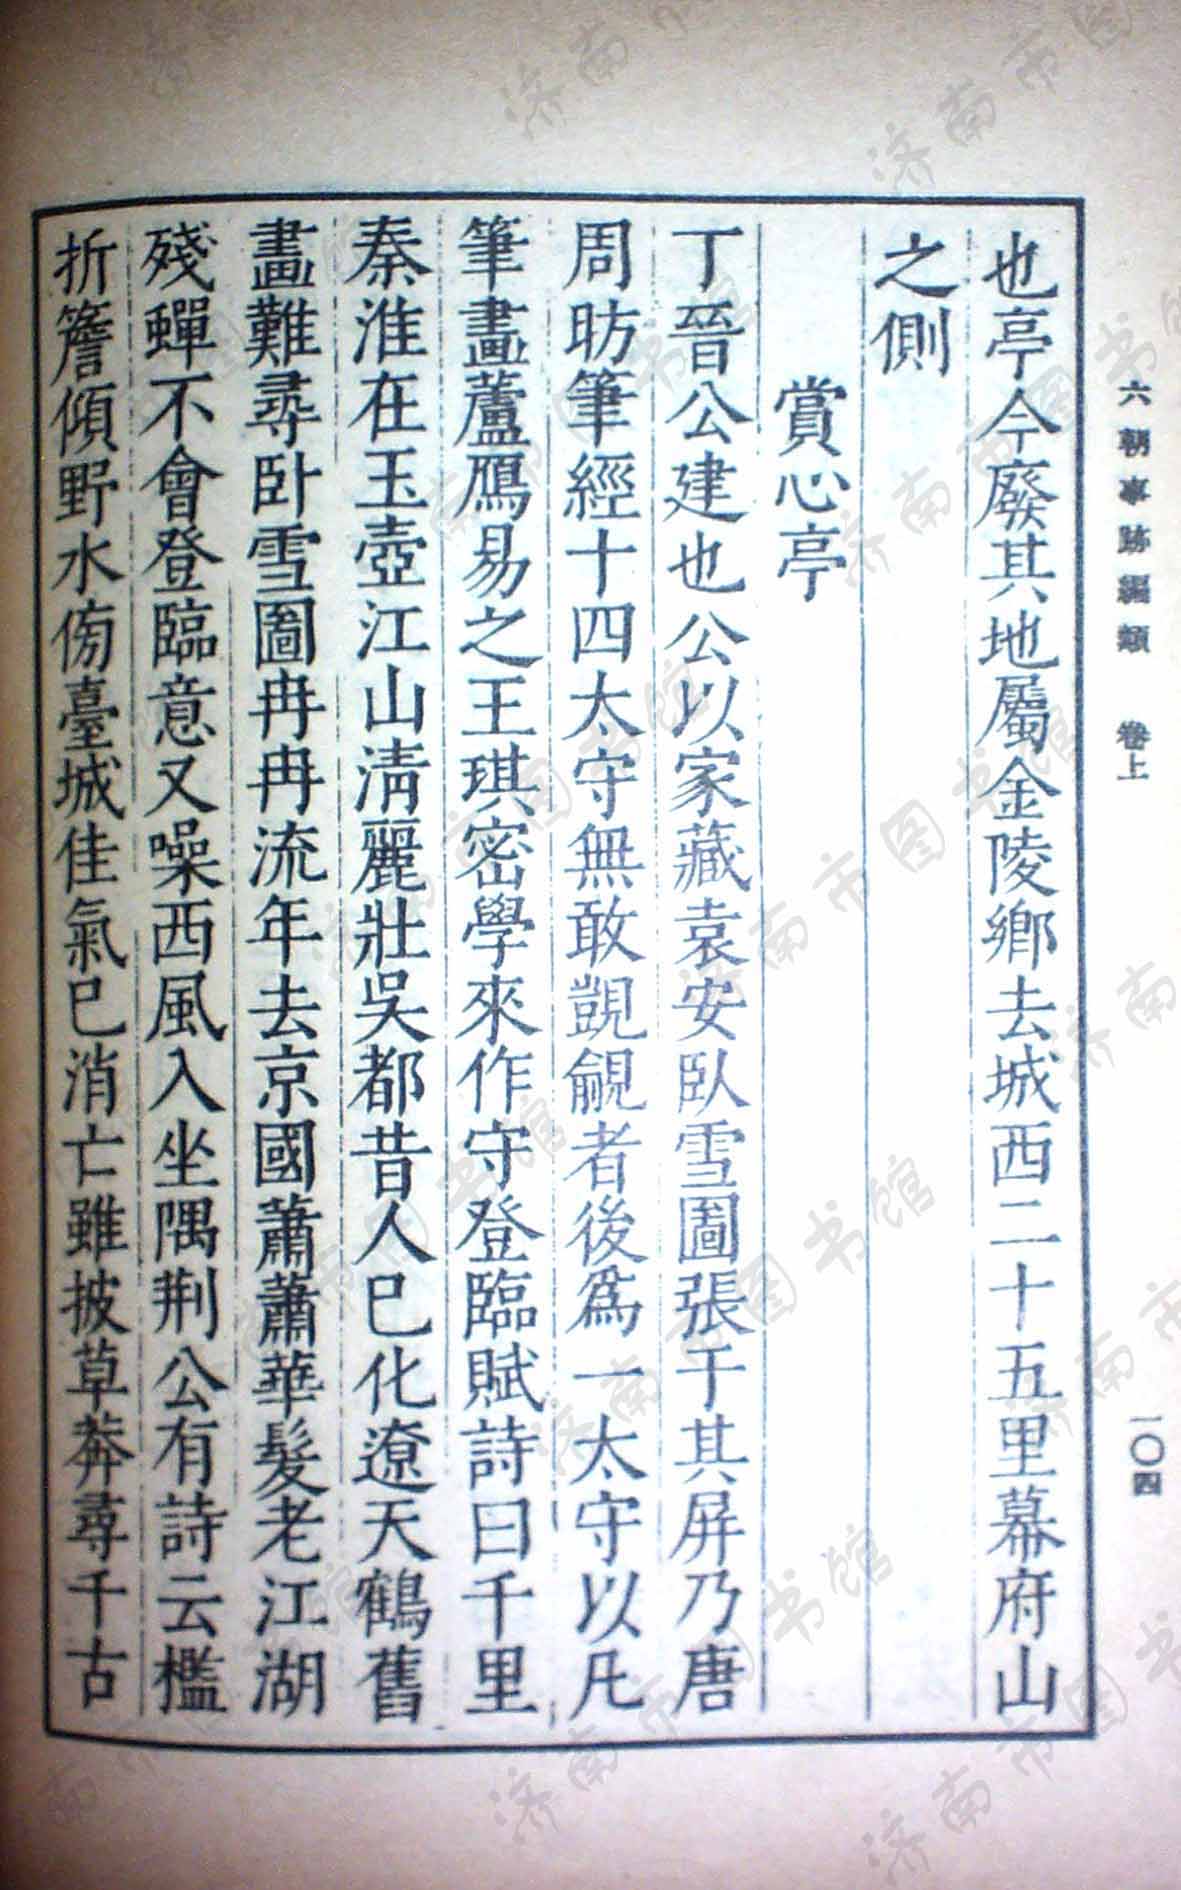 六朝事跡編類 卷上
一〇四
也亭今廢其地屬金陵鄉去城西二十五里幕府山
之側
賞心亭
丁晉公建也公以家藏袁安臥雪圖張于其屏乃唐
周昉筆經十四太守無敢覬覦者後爲一太守以凡
筆畫蘆鴈易之王琪密學來作守登臨賦詩曰千里
秦淮在玉壺江山清麗壯吳都昔人巳化遼天鶴舊
畫難尋卧雪圖冉冉流年去京國蕭蕭華髮老江湖
殘蟬不會登臨意又噪西風入坐隅荆公有詩云檻
折簷傾野水傍臺城佳氣巳消亡雖披草莽尋千古
济南市图书馆